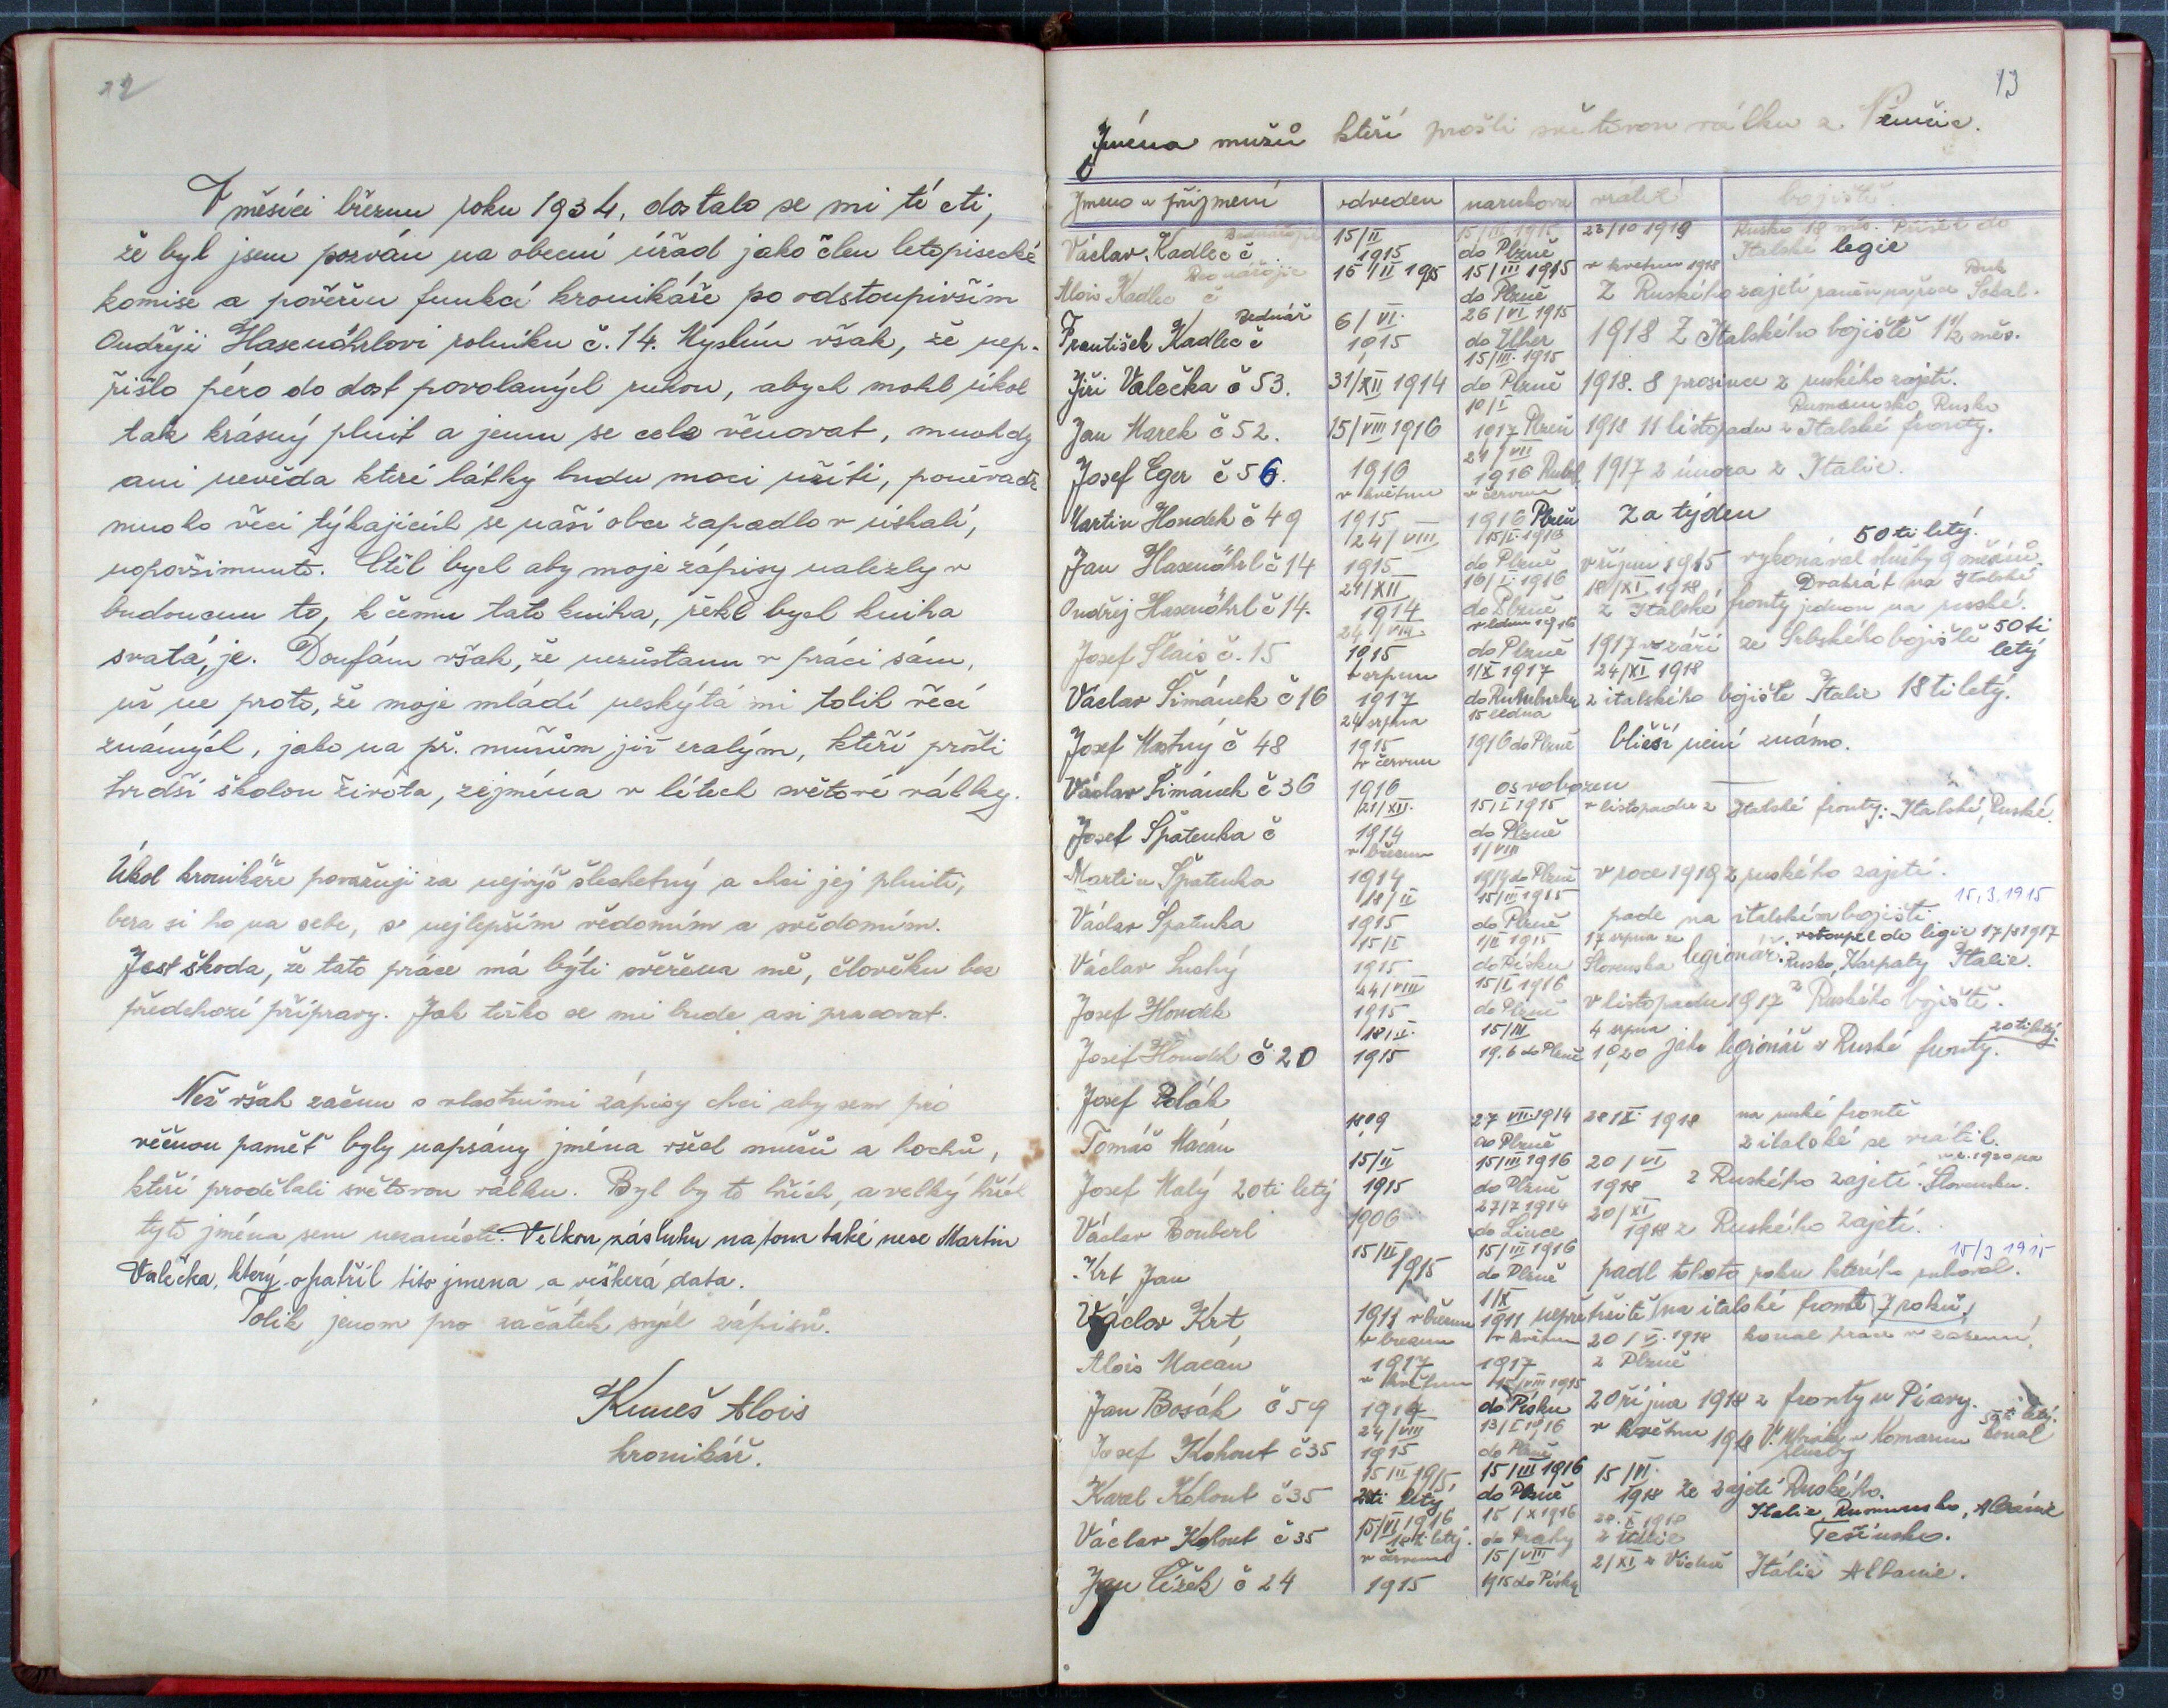 12
V měsíci březnu roku 1934, dostalo se mi té cti,
že byl jsem pozván na obecní úřad jako člen letopisecké
komise a pověřen funkcí kronikáře po odstoupivším
Ondřeji Hasenöhrlovi rolníku č. 14. Myslím však, že nep-
řišlo péro do dost povolaných rukou, abych mohl úkol
tak krásný plnit a jemu se cele věnovat, mnohdy
ani nevěda které látky budu moci užíti, poněvadž
mnoho věcí týkajících se naší obce zapadlo v úskalí,
nepovšimnuto. Chtěl bych aby moje zápisy nalezly v
budoucnu to, k čemu tato kniha, řekl bych kniha
svatá, je. Doufám však, že nezůstanu v práci sám,
už ne proto, že moje mládí neskýtá mi tolik věcí
známých, jako na př. mužům již zralým, kteří prošli
tvrdší školou života, zejména v létech světové války.
Úkol kronikáře považuji za nejvýš šlechetný a chci jej plniti,
bera si ho na sebe, s nejlepším vědomím a svědomím.
Jest škoda, že tato práce má býti svěřena mě, člověku bez
předchozí přípravy. Jak těžko se mi bude asi pracovat.
Než však začnu s vlastními zápisy chci aby sem pro
věčnou paměť byly napsány jména všech mužů a hochů,
kteří prodělali světovou válku. Byl by to hřích, a velký hřích
tyto jména sem nezanésti. Velkou zásluhu na tom také nese Martin
Valečka, který opatřil tito jmena a veškerá data.
Tolik jenom pro začátek mých zápisů.
Kuneš Alois
kronikář.
13
Jména mužů kteří prošli světovou válku z
Jmeno a příjmení odveden narukoval vrátil bojiště
Václav Kadlec č 15/II 1915 15/III 1915 do Plzně 23/10 1919 Rusko 18 měs. Přišel do Italské legie
Alois Kadlec č 15/II 1915 15/III 1915 do Plzně v květnu 1918 Z Ruského zajetí raněn na řece Sokal.
František Kadlec č Bednář 6/VI. 1915 26/VI 1915 do 1918 Z Italského bojiště 1 1/2 měs.
Jiří Valečka č 53. 31/XII 1914 15/III. 1915 do Plzně 1918. 8 prosince z ruského zajetí.
Jan Marek č 52. 15/VIII 1916 10/I 1917 Plzeň 1918 11 listopadu z Italské fronty. Rumunsko, Rusko
Josef Eger č 56. 1916 21/VII 1916 1917 2 února z Italie.
Martin Houdek č 49 v květnu 1915 v červnu 1916 Plzeň Za týden
Jan Hasenöhrl č 14 24/VIII 1915 15/I. 1916 do Plzně v říjnu 1915 vykonával služby 9 měsíců 50 ti letý.
Ondřej Hasenöhrl č 14. 21/XII 1914 16/I 1916 do Plzně 18/XI 1918 z Italské fronty Dvakrát na Italské jednou na ruské.
Josef č. 15 24/VIII 1915 v lednu 1916 do Plzně 1917 v září ze Srbského bojiště 50 ti letý
Václav Šimánek č 16 v srpnu 1917 1/X 1917 24/XI 1918 z italského bojiště Italie 18 ti letý.
Josef Mastný č 48 24 srpna 1915 15 ledna 1916 do Plzně bližší není známo.
Václav Šimánek č 36 v červnu 1916 osvobozen
Josef Špatenka č 21/XII. 1914 15/I 1915 do Plzně v listopadu z Italské fronty. Italské, Ruské.
Martin Špatenka v březnu 1914 1/VIII 1914 do Plzně v roce 1919 z ruského zajetí.
Václav Špatenka 18/II 1915 15/III 1915 do Plzně padl na italském bojišti 15, 3. 1915
Václav Suchý 15/I 1915 1/II 1915 do Písku 17 srpna ze Slovenska legionář. vstoupil do legie 17/8 1917 Rusko, Karpaty Italie.
Josef Houdek 24/VIII 1915 15/I 1916 do Plzně v listopadu 1917 z Ruského bojiště.
Josef Houdek č 20 18/II. 1915 15/III 19.6 do Plzně 4 srpna 1920 jako legionář z Ruské fronty. 20 ti letý.
Josef Polák
Tomáš Macán 1909 27 VII. 1914 do Plzně 28 IX. 1918 na ruské frontě z italské se vrátil.
Josef Malý 20 ti letý 15/II 1915 15/III 1916 do Plzně 20/VI 1918 z Ruského zajetí. v r. 1920 na Slovensku.
Václav Bouberl 1906 27/7 1914 do Lince 20/XI 1918 z Ruského zajetí.
Krt Jan 15/II 1915 15/III 1916 do Plzně padl tohoto roku kterého rukoval. 15/3 1915
Václav Krt 1911 v březnu 1/X 1911 nepřetržitě na italské frontě 7 roků!
Alois Macán v březnu 1917 v květnu 1917 20/V. 1918 z Plzně konal práce v zázemí.
Jan Bosák č 59 v květnu 1914 15/VIII 1915 do Písku 20 října 1918 z fronty u Piavy.
Josef Kohout č 35 24/VIII 1915 13/I 1916 do Plzně v květnu 1918 v Komarnu konal služby 50 ti letý.
Karel Kohout č 35 15/II 1915, letý 15/III 1916 do Plzně 15/VI. 1918 Ze zajetí Ruského.
Václav Kohout č 35 15/VI 1916 18 ti letý. 15/X 1916 do Prahy 28. X 1918 z Italie Italie, Rumunsko, Albánie Těšínsko.
Jan Čížek č 24 v červnu 1915 15/VIII 1915 do Písku 2/XI z Vídně Itálie Albanie.